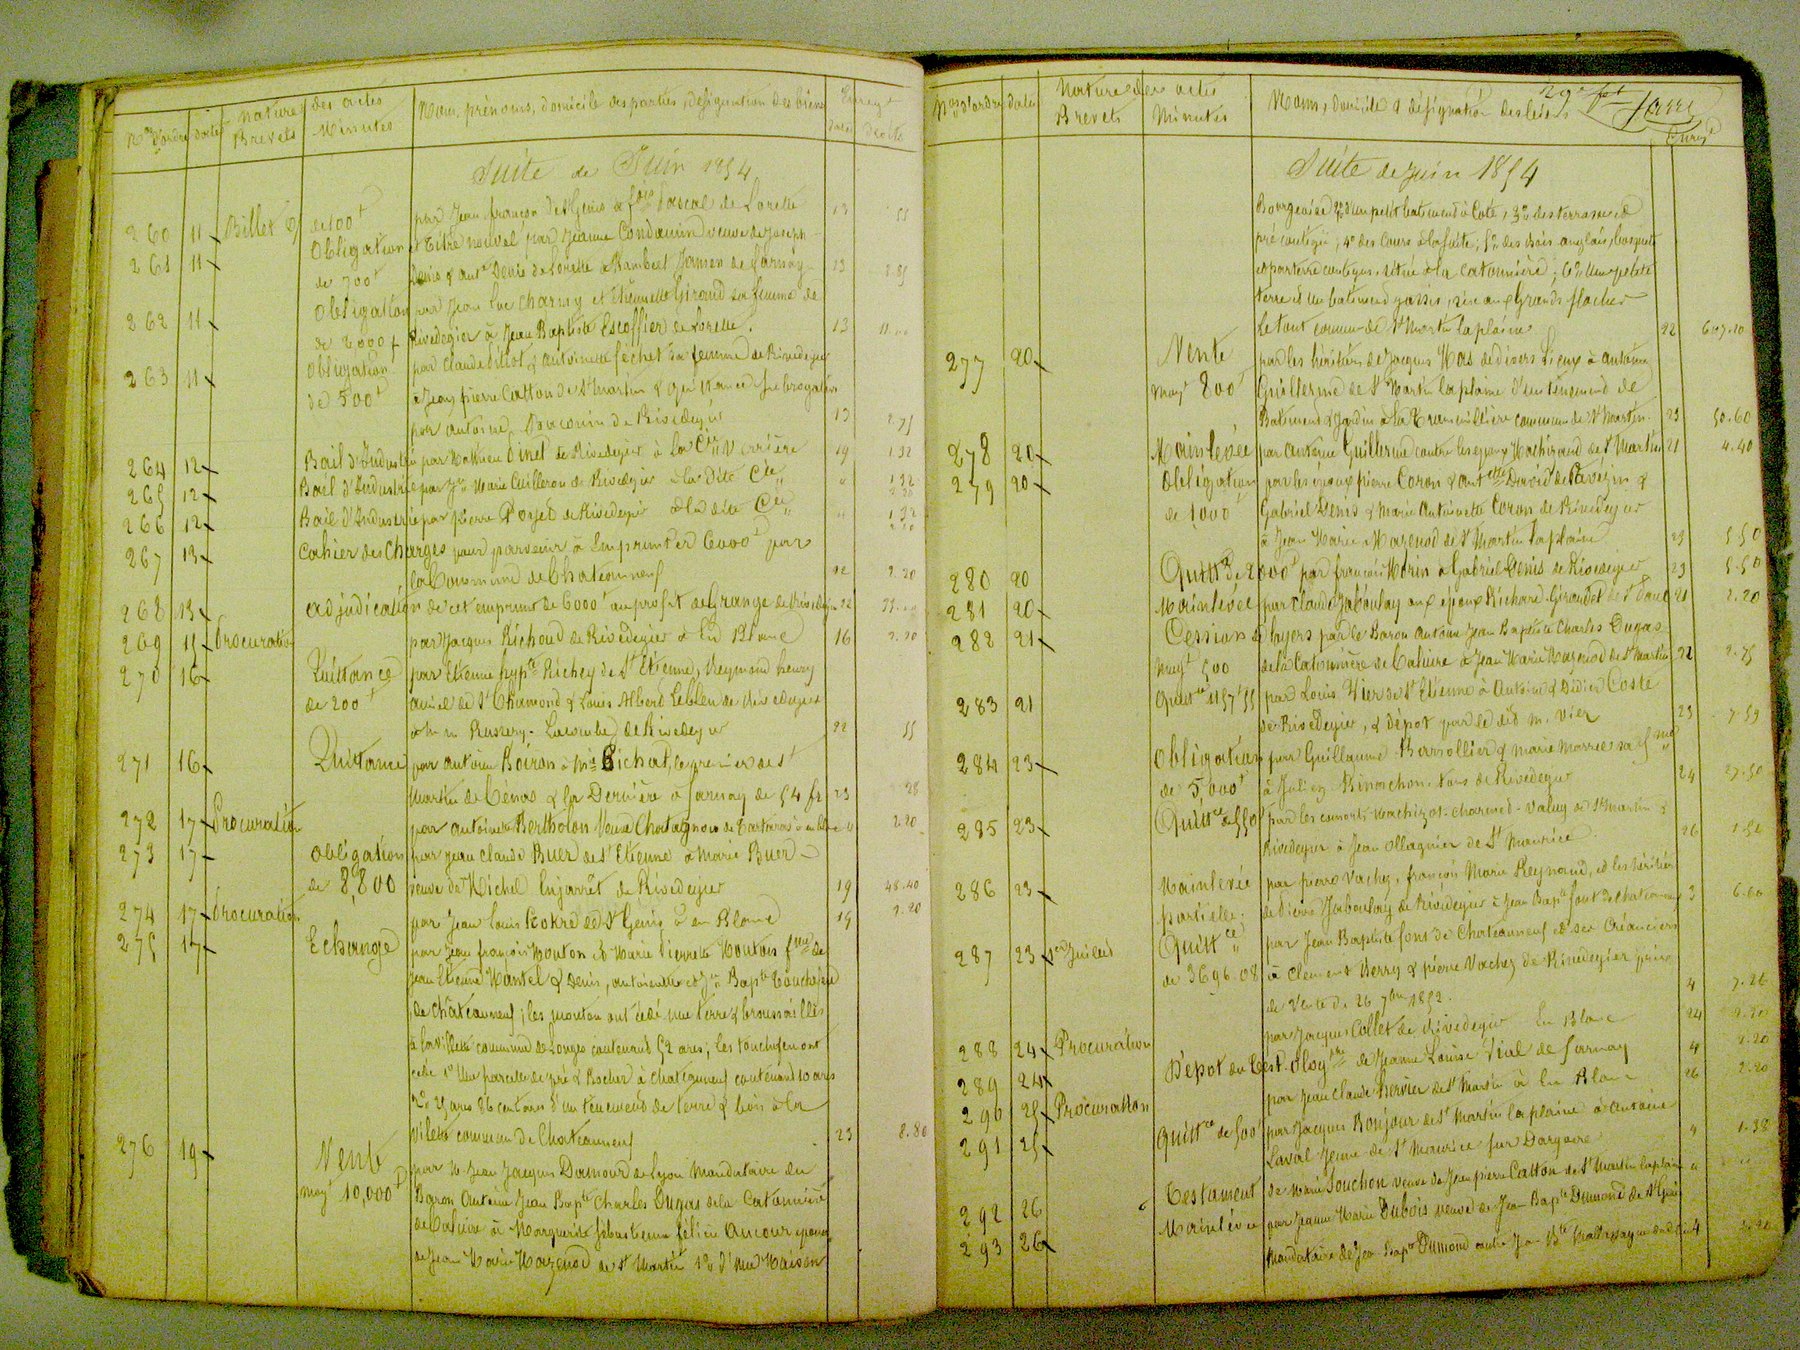 Nos d'ordre dates Nature des actes Noms, prénoms, domicile des parties, désignation des biens Enregt
Brevets Minutes dates droits
Suite de Juin 1854
260 11 Billet de 100 f par Jean françois de St Genis à Pascal de Lorette 13 55
261 11 Obligation et titre nouvel par Jeanne Condamin veuve de Joseph
de 700 f Denis & ant. Denis de Lorette à Rambert Janson de farnay 13
262 11 Obligation par Jean Luc Charmy et Etiennette Giraud sa femme de
de 2000 f Rivedegier à Jean Baptiste Escoffier de Lorette. 13 11.00
263 11 Obligation par Claude & antoinette féchet sa femme de Rivedegier
de 500 f à Jean pierre Catton de St martin & quittance subrogative
par antoine de Rivedegier 13 2.75
264 12 Bail d'Industrie par Mathieu Pinel de Rivedegier à la Cie Verrière 19 1.32
265 12 Bail d'Industrie par Jn Marie Cuilleron de Rivedegier à la dite Cie " 1.32
266 12 Bail d'Industrie par pierre Poyet de Rivedegier à la dite Cie " 1.32
267 13 Cahier des Charges pour parvenir à Emprunter 6000 f par
la Commune de Chateauneuf 22 2.20
268 13 adjudication de cet emprunt de 6000 f au profit de Grange de Rivedegier 22
269 15 Procuration par Jacques Richoud de Rivedegier à En Blanc 16 2.20
270 16 Quittance par Etienne hypte Richey de St Etienne, Reymond henry
de 200 f de St Chamond & Louis Albert Leblen de Rivedegier
à m. m. Lacombe de Rivedegier 22 55
271 16 Quittance par antoine Boiron à Mr Bichat, de St
Martin de Cenas & la Dernière à farnay de 54 fr 23 28
272 17 Procuration par antoinette Bertholon Veuve Chatagnon de Tartaras à en blanc " 2.20
273 17 Obligation par Jean Claude Buer de St Etienne à Marie Buer
de 8,800 veuve de Michel Injarrêt de Rivedegier 19 48.40
274 17 Procuration par Jean Louis de St Genis à en Blanc 19 2.20
275 17 Echange par Jean françois Mouton et Marie Pierrette Mouton fme de
Jean Etienne Martel & Denis, antoinette et Jn Bapte Touchefeu
de Châteauneuf; les mouton ont cédé une terre & broussailles
à la Villette commune de Longes contenant 52 ares; les touchefeu ont
cédé 1° Une parcelle de pré & Rocher à Chateauneuf contenant 10 ares
2° 25 ares 86 centiares d'un tenement de terre & bois à la
Villette commune de Chateauneuf 23 8.80
276 19 Vente par M. Jean Jacques Damour de Lyon Mandataire du
moyt 10,000 f Baron Antoine Jean Bapte Charles Dugas de la Catonnière
de Caluire à Marguerite Sébastienne félicie Ancour épouse
de Jean Marie Mazenod de St Martin 1° d'une Maison
Nos d'ordre dates Nature des actes Noms, domicile & désignation des biens
Brevets Minutes Enregt
Suite de Juin 1854
Bourgeoise 2° d'un petit batiment à Côté; 3° des terrasses &
pré contigu; 4° des Cours à la suite; 5° des Bois anglais, bosquets
& parterre contigus, située à la Catonnière; 6° Une petite
terre et un batiment y assis, sise aux Grands flaches
Le tout commune de St Martin la plaine 22 607.20
277 20 Vente par les héritiers de Jacques Mas de divers Lieux à antoine
moyt 800 f Guillerme de St Martin la plaine d'un tenement de
Batiment & Jardin à la commune de St Martin 23 50.60
278 20 Mainlevée par Antoine Guillerme contre les époux Machiraud de St Martin 21 4.40
279 20 Obligation par les époux pierre Coron & antte David de Pavezin &
de 1000 f Gabriel Denis & Marie Antoinette Coron de Rivedegier
à Jean Marie Mazenod de St Martin la plaine 23 5.50
280 20 Quittce de 2000 f par françois Morin à Gabriel Denis de Rivedegier 23 5.50
281 20 Mainlevée par Claude Jaboulay aux époux Richard Giraudet de St Paul 21 2.20
282 21 Cession de loyers par le Baron Antoine Jean Baptiste Charles Dugas
moyt 500 de la Catonnière de Caluire à Jean Marie Mazenod de St Martin 22 2.75
283 21 Quittce 1157 f 55 par Louis Vier de St Etienne à Antoine & Didier Coste
de Rivedegier, & dépot par le dit m. Vier 23 7.59
284 23 Obligation par Guillaume Bersollier & marie Marrel sa fme
de 5,000 f à Julien Pinochon tous de Rivedegier 24 27.50
285 23 Quittce de 550 f par les consorts Machizot-charmet-Valuy de St Martin &
Rivedegier à Jean Ollagnier de St Maurice 26 1.54
286 23 Mainlevée par pierre Vachez, françois Marie Reynaud, et les héritiers
partielle. de Pierre Jaboulay de Rivedegier à Jean Bapte font de Chateauneuf 3 6.60
287 23 1er Juillet Quittce par Jean Baptiste font de Chateauneuf et ses Créanciers
de 3696.08 à Clement Berry & pierre Vachez de Rivedegier prix
de Vente du 26 7bre 1852. 4 7.26
288 24 Procuration par Jacques Collet de Rivedegier En Blanc 24 2.20
289 24 Dépot du test. Olog. de Jeanne Louise Vial de farnay 4 2.20
290 25 Procuration par Jean Claude Hervier de St Martin à En Blanc 26 2.20
291 25 Quittce de 500 f par Jacques Bonjour de St Martin la plaine à antoine
Laval Jeune de St Maurice sur Dargoire " 1.38
292 26 Testament de Marie Souchon veuve de Jean pierre Catton de St Martin laplaine "
293 26 Mainlevée par Jeanne Marie Dubois veuve de Jean Bapte Dumond de St Genis
Mandataire de Jean Bapte Dumond contre Jn Bte 4 2.20